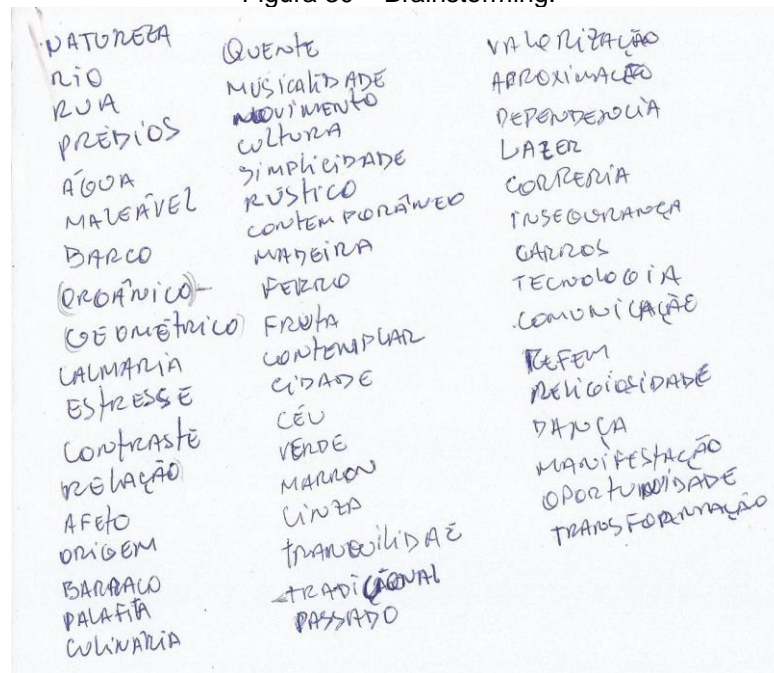 NATUREZA
RIO
RUA
PRÉDIOS
ÁGUA
MALEÁVEL
BARCO
(ORGÂNICO)-
(GEOMÉTRICO)
CALMARIA
ESTRESSE
CONTRASTE
RELAÇÃO
AFETO
ORIGEM
BARRACO
PALAFITA
CULINÁRIA
QUENTE
MUSICALIDADE
MOVIMENTO
CULTURA
SIMPLICIDADE
RÚSTICO
CONTEMPORÂNEO
MADEIRA
FERRO
FRUTA
CONTEMPLAR
CIDADE
CÉU
VERDE
MARRON
CINZA
TRANQUILIDAE
TRADICIONAL
PASSADO
VALORIZAÇÃO
APROXIMAÇÃO
DEPENDENCIA
LAZER
CORRERIA
INSEGURANÇA
CARROS
TECNOLOGIA
COMUNICAÇÃO
REFEM
RELIGIOSIDADE
DANÇA
MANIFESTAÇÃO
OPORTUNIDADE
TRANSFORMAÇÃO